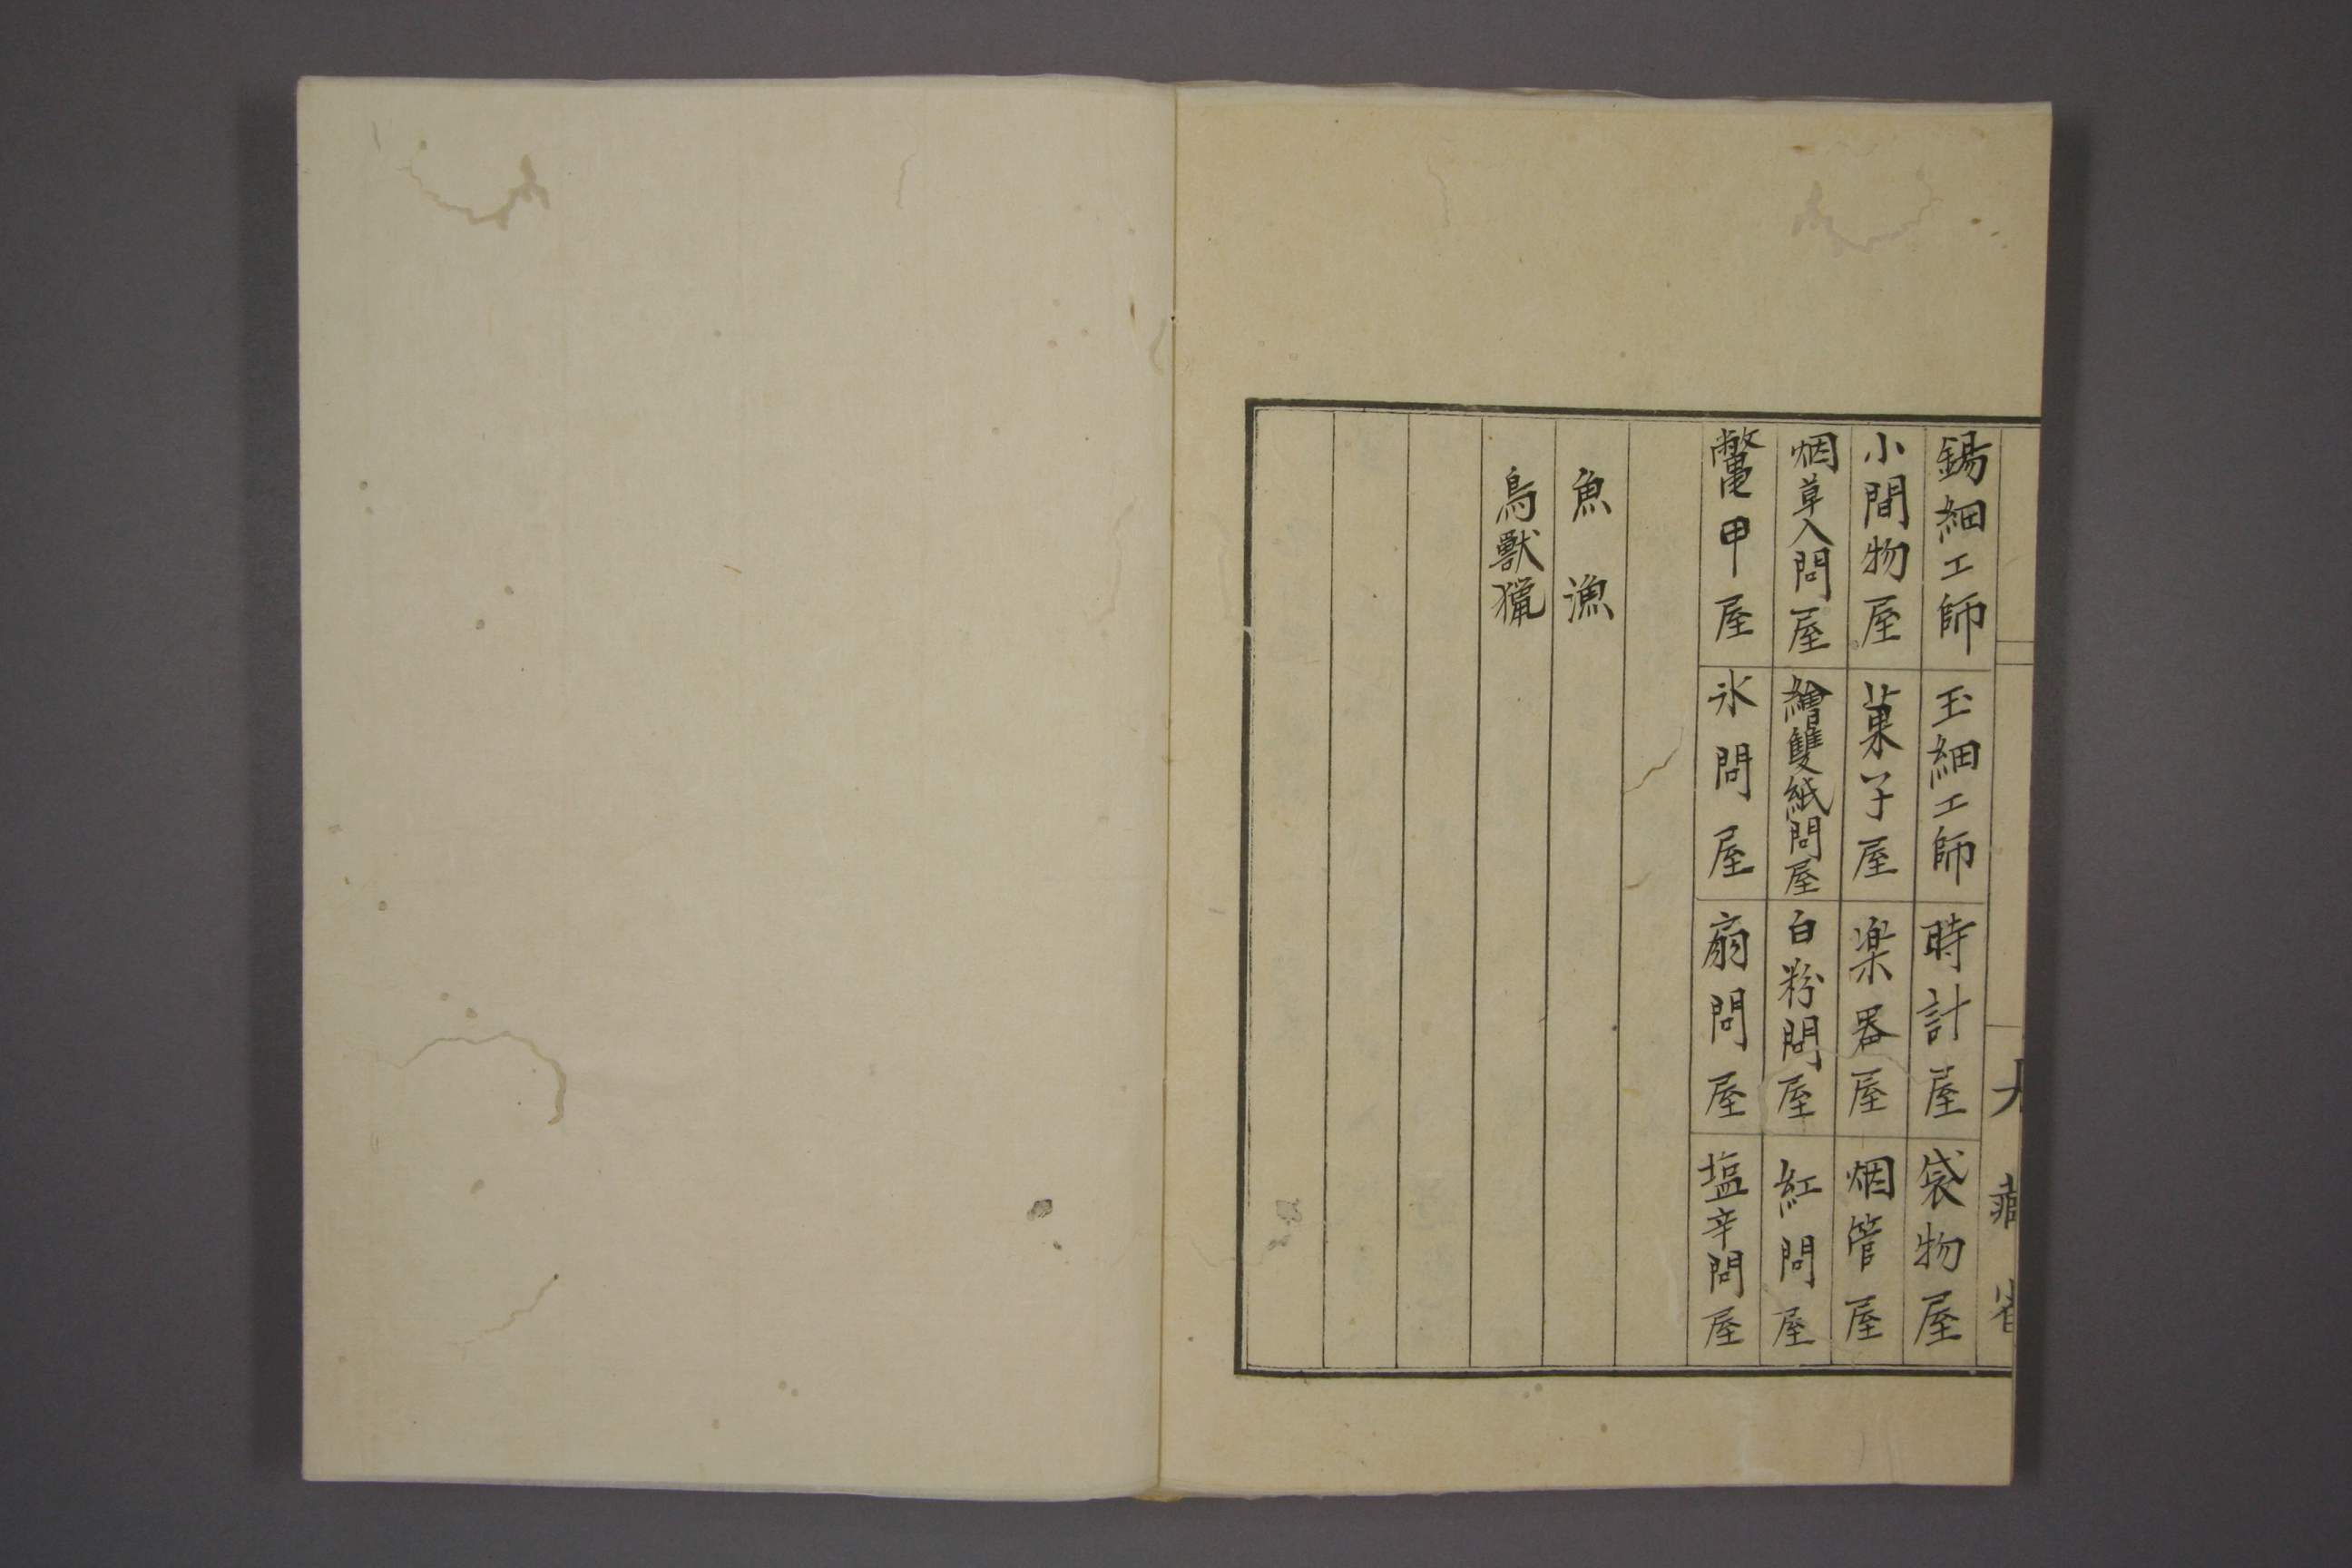 錫細工師 玉細工師 時計屋 袋物屋
小間物屋 菓子屋 楽器屋 烟管屋
烟草入問屋 繪雙紙問屋 白粉問屋 紅問屋
鼈甲屋 氷問屋 扇問屋 塩辛問屋
魚漁
鳥獸獵